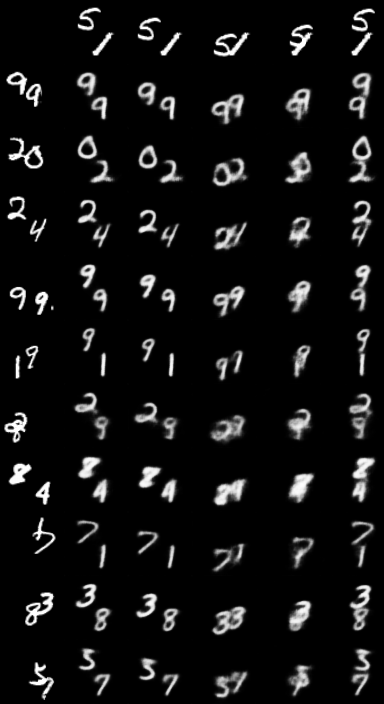 51 51 51 51 51
99 99 99 99 99
20 02 02 02 02
24 24 24 24 24
99 99 99 99 99
19 91 91 91 91
29 29 29
84 84 84 84 84
71 71 71 71
83 38 38 33 38
57 57 57 57 57